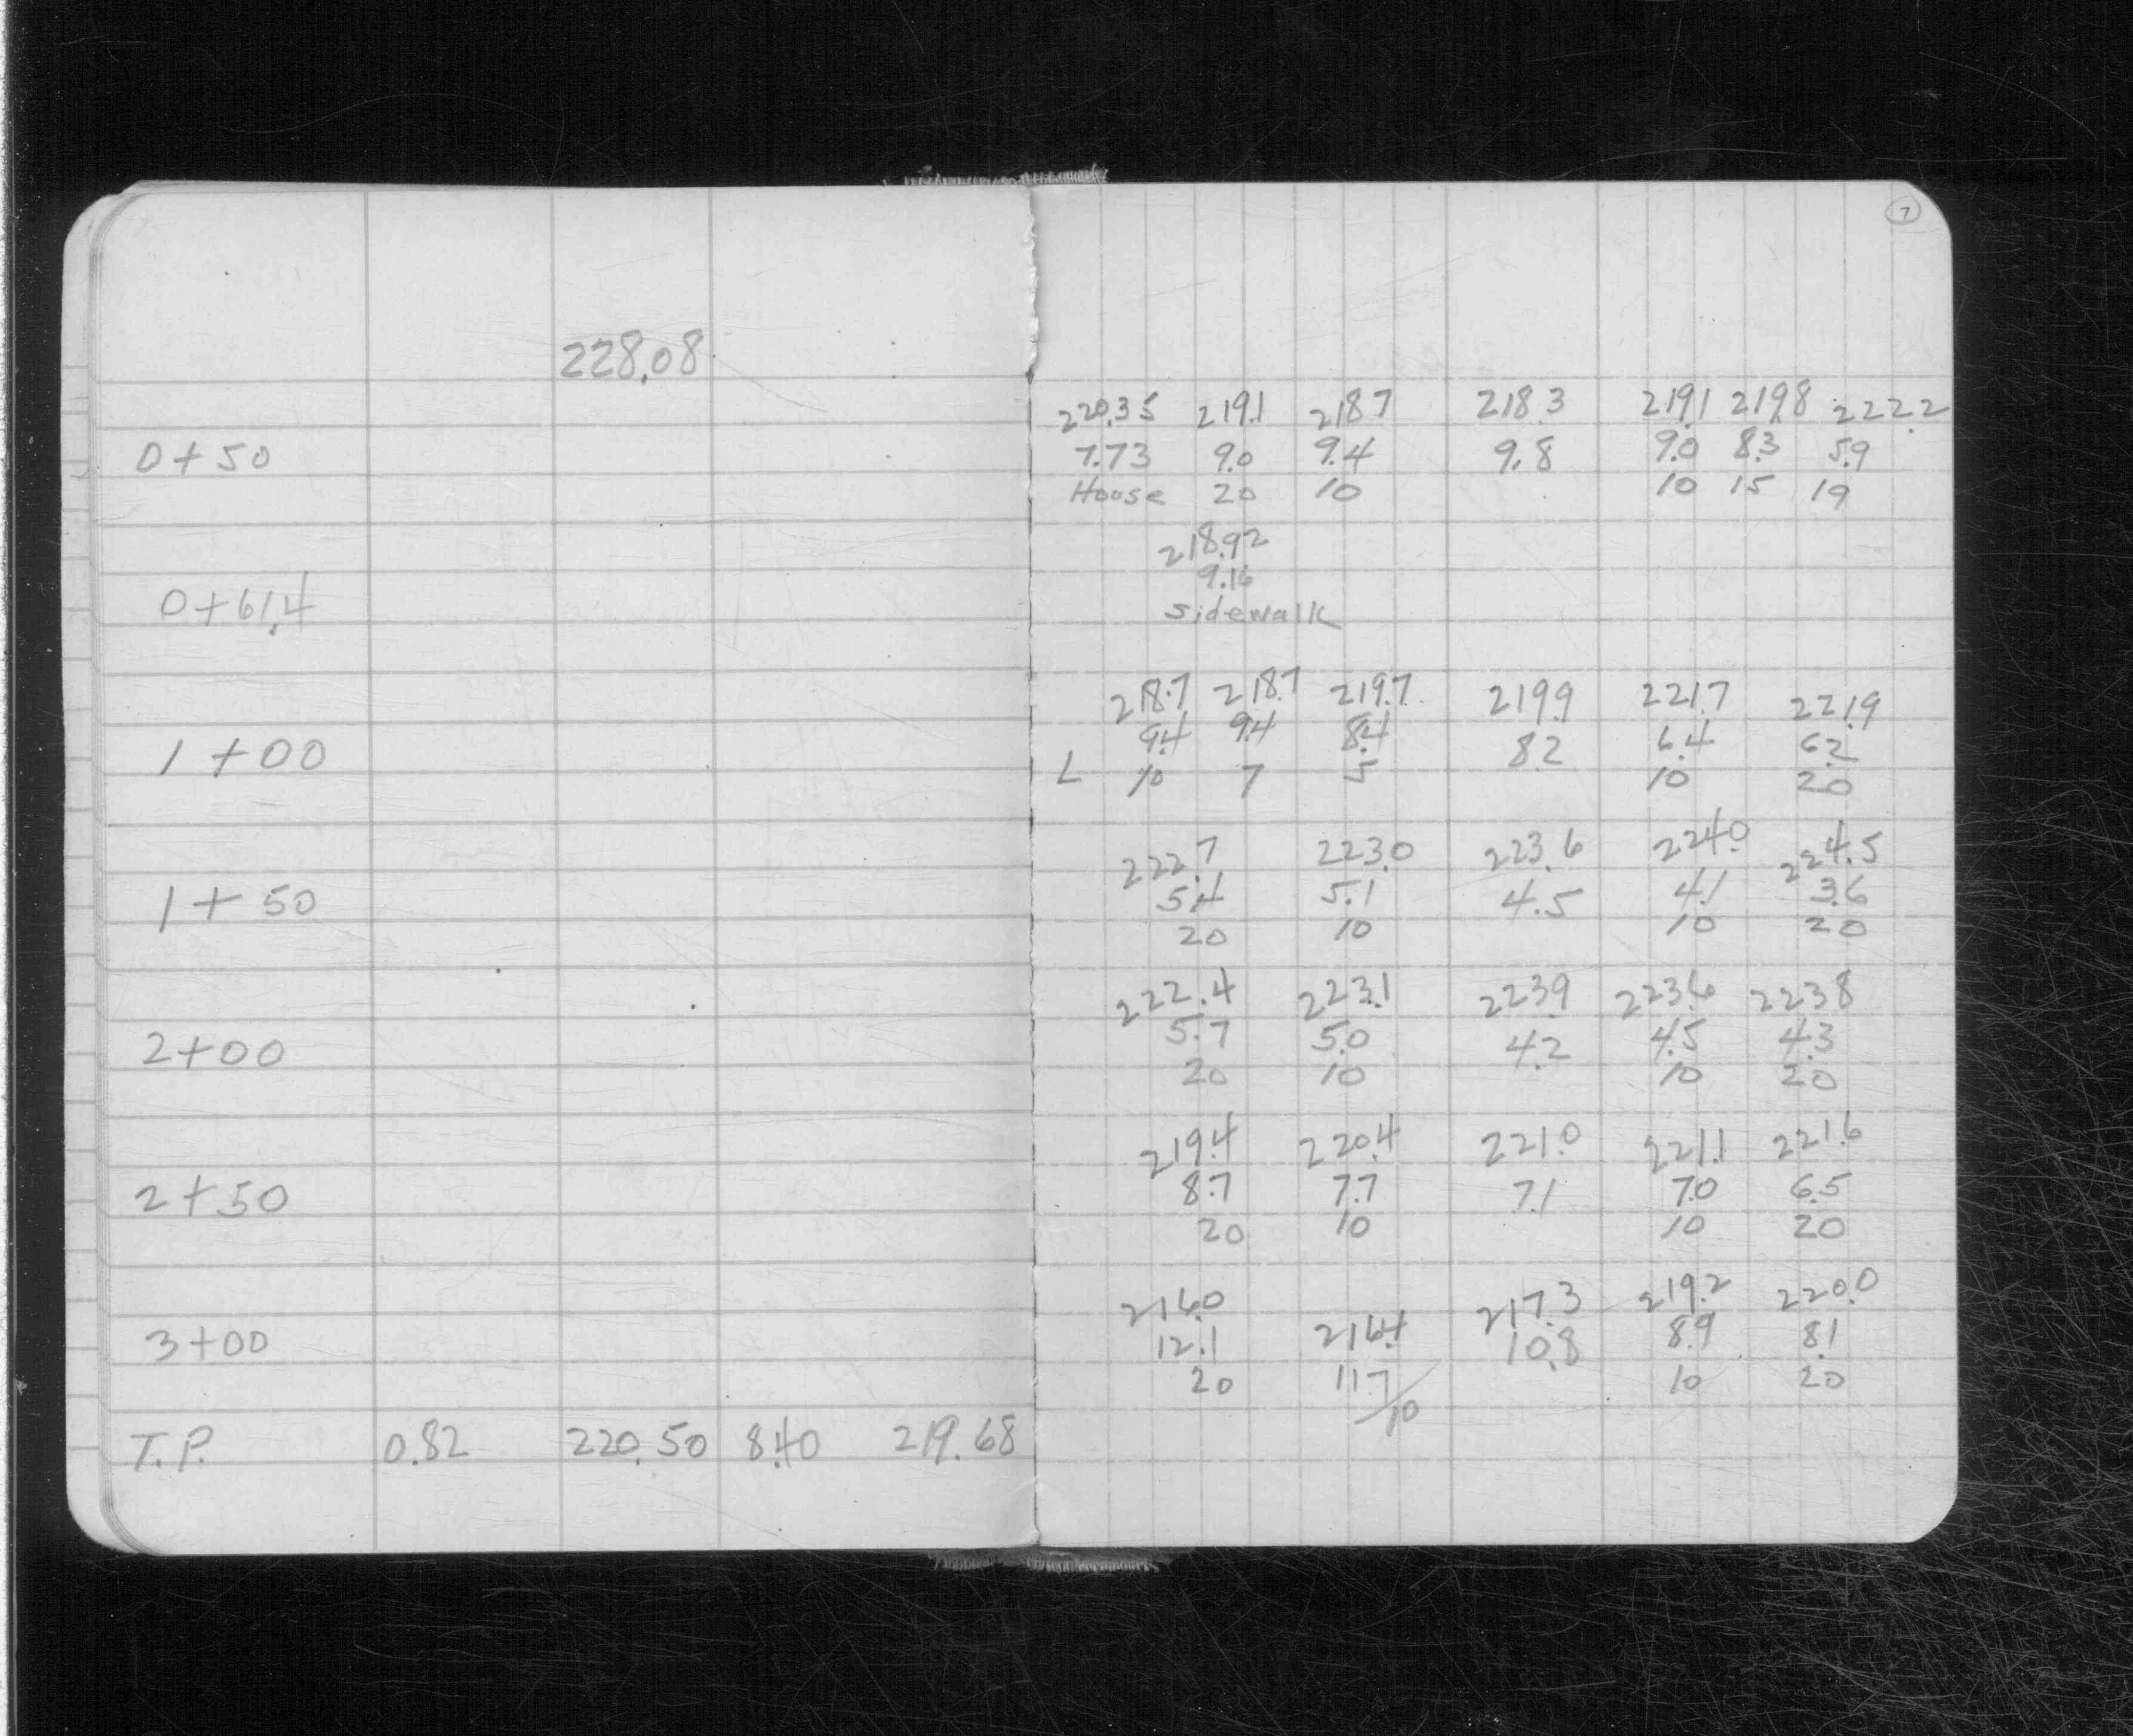 7
228.08
220.35 219.1 218.7 218.3 219.1 219.8 222.2
0+50 7.73 9.0 9.4 9.8 9.0 8.3 5.9
House 20 10 10 15 19
218.92
9.16
0+61.4 sidewalk
218.7 218.7 219.7 219.9 221.7 221.9
1+00 9.4 9.4 8.4 8.2 6.4 6.2
L 10 7 5 10 20
222.7 223.0 223.6 224.0 224.5
1+50 5.4 5.1 4.5 4.1 3.6
20 10 10 20
222.4 223.1 223.9 223.6 223.8
2+00 5.7 5.0 4.2 4.5 4.3
20 10 10 20
219.4 220.4 221.0 221.1 221.6
2+50 8.7 7.7 7.1 7.0 6.5
20 10 10 20
216.0 216.4 217.3 219.2 220.0
3+00 12.1 11.7 10.8 8.9 8.1
20 10 10 20
T.P. 0.82 220.50 8.40 219.68